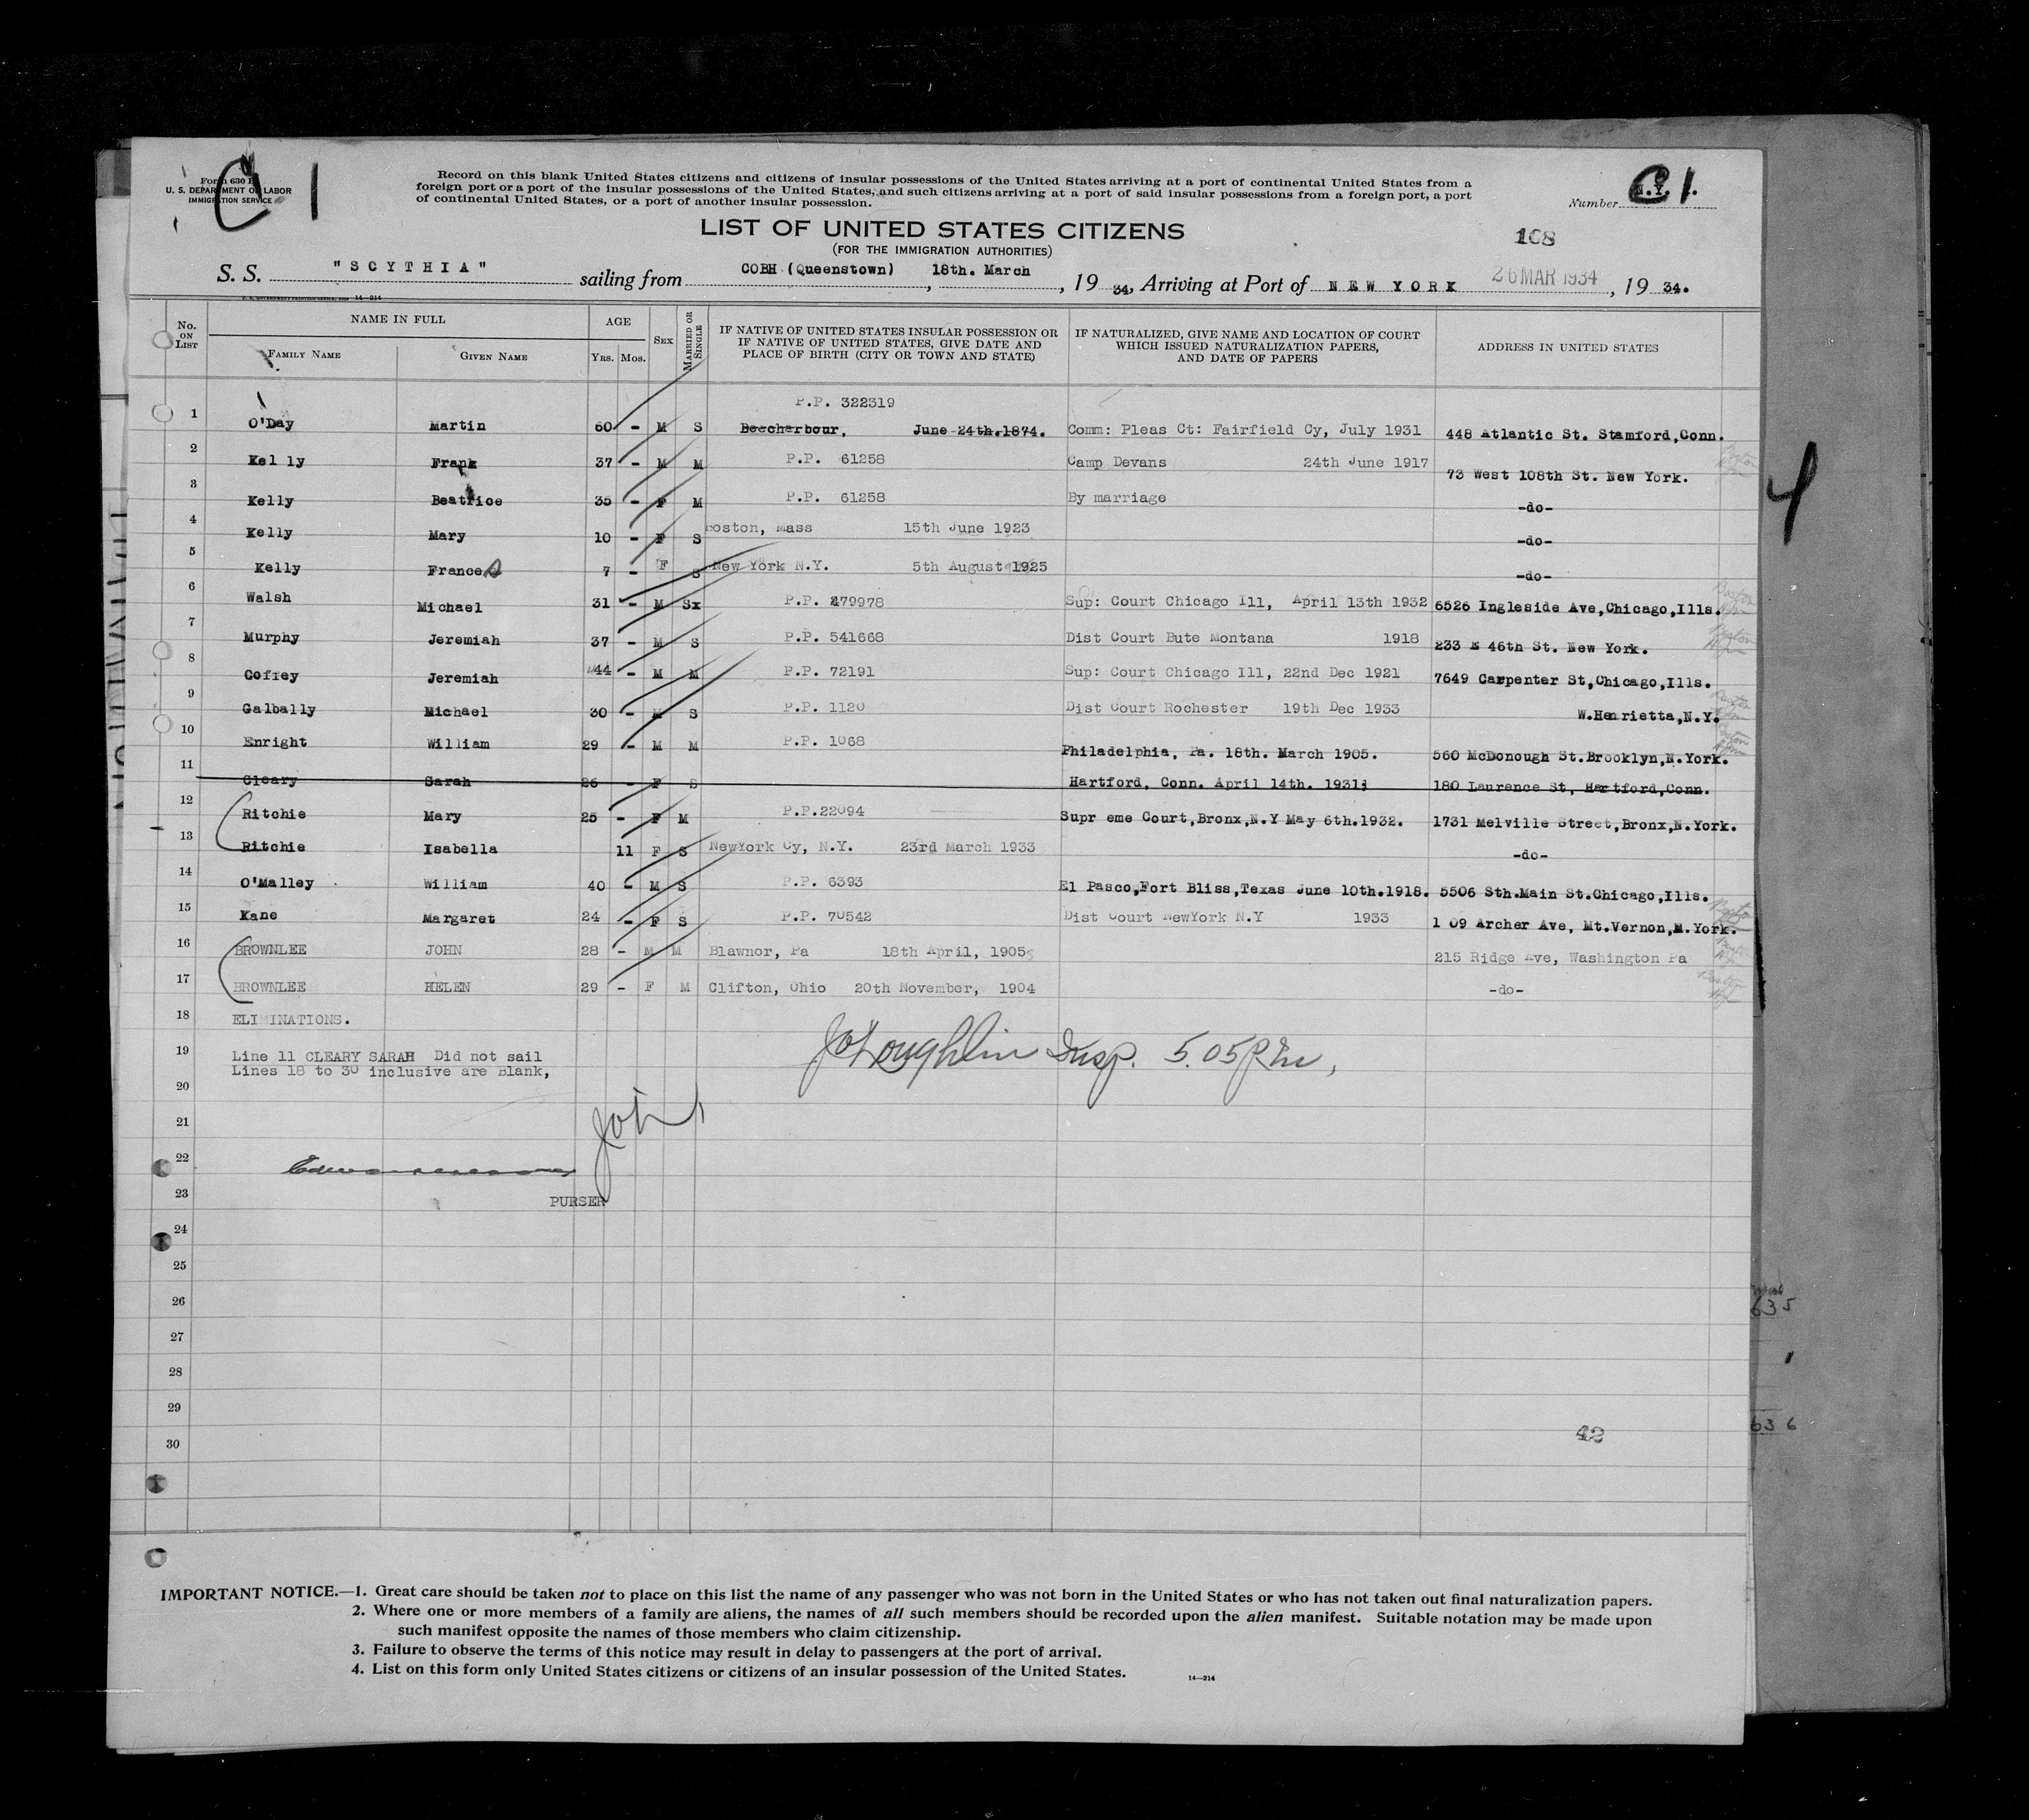 C 1
Form 630
U. S. DEPARTMENT OF LABOR
IMMIGRATION SERVICE
Record on this blank United States citizens and citizens of insular possessions of the United States arriving at a port of continental United States from a
foreign port or a port of the insular possessions of the United States, and such citizens arriving at a port of said insular possessions from a foreign port, a port
of continental United States, or a port of another insular possession.
C1
Number
LIST OF UNITED STATES CITIZENS
(FOR THE IMMIGRATION AUTHORITIES)
168
S. S. "SCYTHIA" sailing from COBH (Queenstown), 18th. March, 19 34, Arriving at Port of NEW YORK 26 MAR 1934, 19 34.
14-214
No. ON LIST NAME IN FULL AGE SEX MARRIED OR SINGLE IF NATIVE OF UNITED STATES INSULAR POSSESSION OR IF NATIVE OF UNITED STATES, GIVE DATE AND PLACE OF BIRTH (CITY OR TOWN AND STATE) IF NATURALIZED, GIVE NAME AND LOCATION OF COURT WHICH ISSUED NATURALIZATION PAPERS, AND DATE OF PAPERS ADDRESS IN UNITED STATES
FAMILY NAME GIVEN NAME YRS. MOS.
P.P. 322319
1 O'Day Martin 60 - M S Beecharbour, June 24th.1874. Comm: Pleas Ct: Fairfield Cy, July 1931 448 Atlantic St. Stamford,Conn.
2 Kelly Frank 37 - M M P.P. 61258 Camp Devans 24th June 1917 73 West 108th St. New York.
3 Kelly Beatrice 35 - F M P.P. 61258 By marriage -do-
4 Kelly Mary 10 - F S Boston, Mass 15th June 1923 -do-
5 Kelly Frances 7 - F S New York N.Y. 5th August 1925 -do-
6 Walsh Michael 31 - M Sx P.P. 479978 Sup: Court Chicago Ill, April 13th 1932 6526 Ingleside Ave,Chicago,Ills.
7 Murphy Jeremiah 37 - M S P.P. 541668 Dist Court Bute Montana 1918 233 E 46th St. New York.
8 Coffey Jeremiah 44 - M M P.P. 72191 Sup: Court Chicago Ill, 22nd Dec 1921 7649 Carpenter St,Chicago,Ills.
9 Galbally Michael 30 - M S P.P. 1120 Dist Court Rochester 19th Dec 1933 W.Henrietta,N.Y.
10 Enright William 29 - M M P.P. 1068 Philadelphia, Pa. 18th. March 1905. 560 McDonough St.Brooklyn,N.York.
11 Cleary Sarah 26 - F S Hartford, Conn. April 14th. 1931; 180 Laurence St, Hartford,Conn.
12 Ritchie Mary 25 - F M P.P.22094 Supr eme Court,Bronx,N.Y May 6th.1932. 1731 Melville Street,Bronx,N.York.
13 Ritchie Isabella 11 F S NewYork Cy, N.Y. 23rd March 1933 -do-
14 O'Malley William 40 - M S P.P. 6393 El Pasco,Fort Bliss,Texas June 10th.1918. 5506 Sth.Main St.Chicago,Ills.
15 Kane Margaret 24 - F S P.P. 70542 Dist Court NewYork N.Y 1933 1 09 Archer Ave, Mt.Vernon,N.York.
16 BROWNLEE JOHN 28 - M M Blawnor, Pa 18th April, 1905 215 Ridge Ave, Washington Pa
17 BROWNLEE HELEN 29 - F M Clifton, Ohio 20th November, 1904 -do-
18 ELIMINATIONS.
19 Line 11 CLEARY SARAH Did not sail
Lines 18 to 30 inclusive are Blank,
JoLoughlin Insp. 5.05 P.m,
20
21
22
23 PURSER
24
25
26
27
28
29
30
42
635
636
IMPORTANT NOTICE.—1. Great care should be taken not to place on this list the name of any passenger who was not born in the United States or who has not taken out final naturalization papers.
2. Where one or more members of a family are aliens, the names of all such members should be recorded upon the alien manifest. Suitable notation may be made upon
such manifest opposite the names of those members who claim citizenship.
3. Failure to observe the terms of this notice may result in delay to passengers at the port of arrival.
4. List on this form only United States citizens or citizens of an insular possession of the United States.
14—214